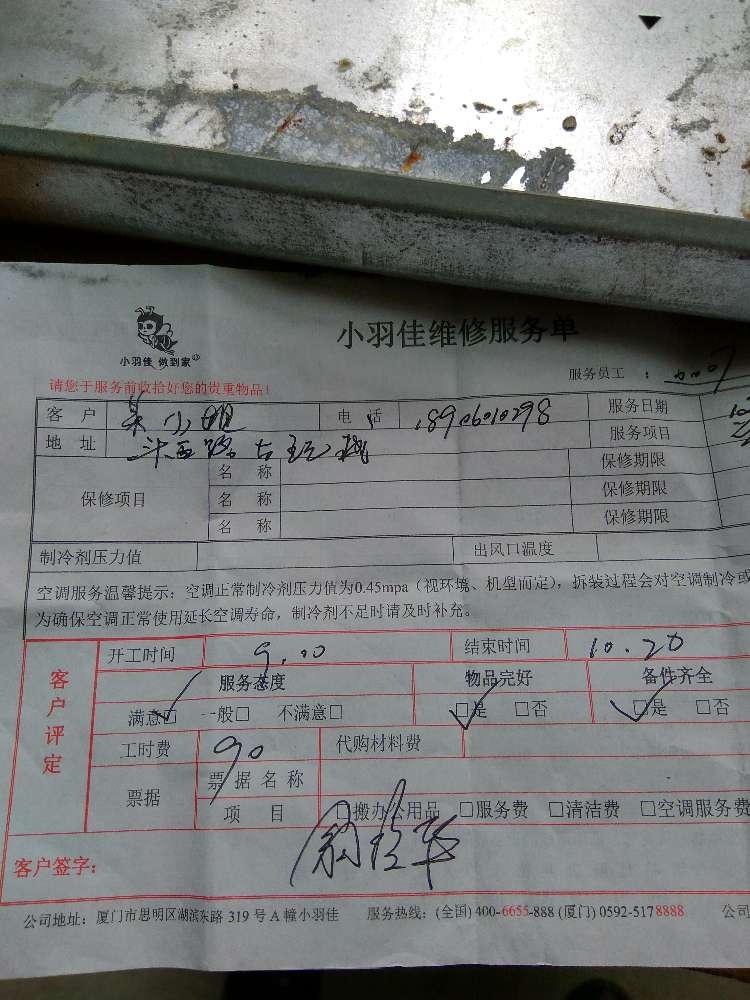 小羽佳 做到家
小羽佳维修服务单
服务员工 ：
请您于服务前收拾好您的贵重物品！
客 户 小姐 电 话 18906010298 服务日期
地 址 服务项目
保修项目
名 称 保修期限
名 称 保修期限
名 称 保修期限
制冷剂压力值 出风口温度
空调服务温馨提示：空调正常制冷剂压力值为0.45mpa（视环境、机型而定），拆装过程会对空调制冷或
为确保空调正常使用延长空调寿命，制冷剂不足时请及时补充。
客户评定
开工时间 9.00 结束时间 10.20
服务态度 物品完好 备件齐全
满意☑ 一般□ 不满意□ ☑是 □否 ☑是 □否
工时费 90 代购材料费
票据 票据名称
项 目 □搬办公用品 □服务费 □清洁费 □空调服务费
客户签字：
公司地址：厦门市思明区湖滨东路 319 号 A 幢小羽佳 服务热线：(全国) 400-6655-888 (厦门) 0592-5178888 公司